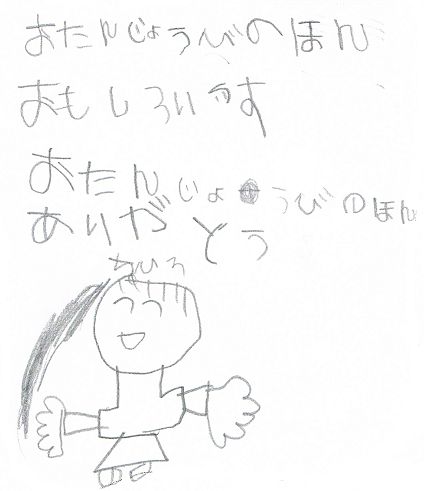 おたんじょうびのほん
おもしろいです
おたんじょうびのほん
ありがとう
ちひろ